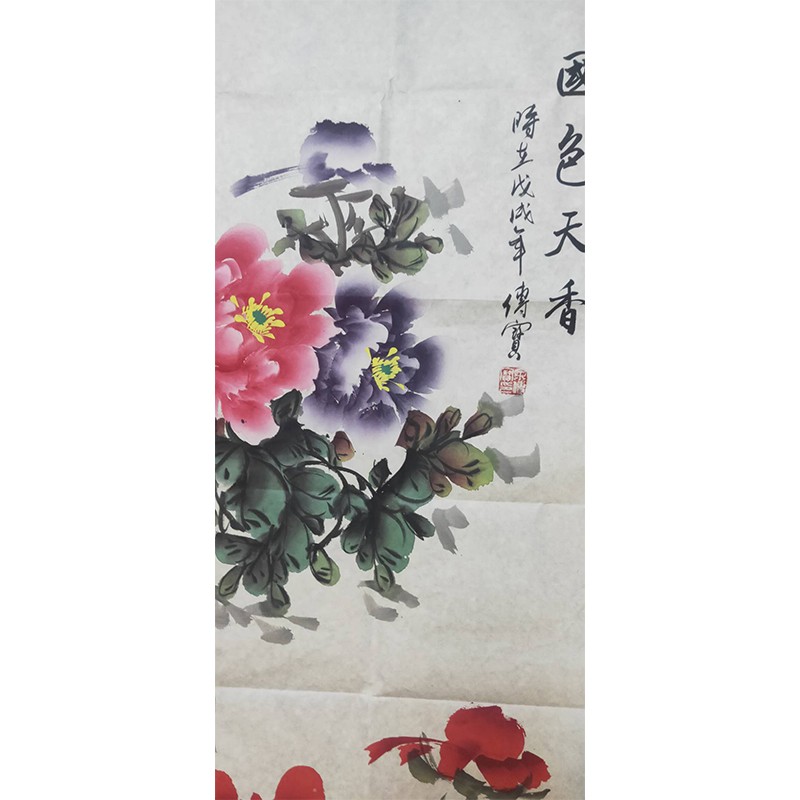 國色天香
時在戊戌年
傳寶